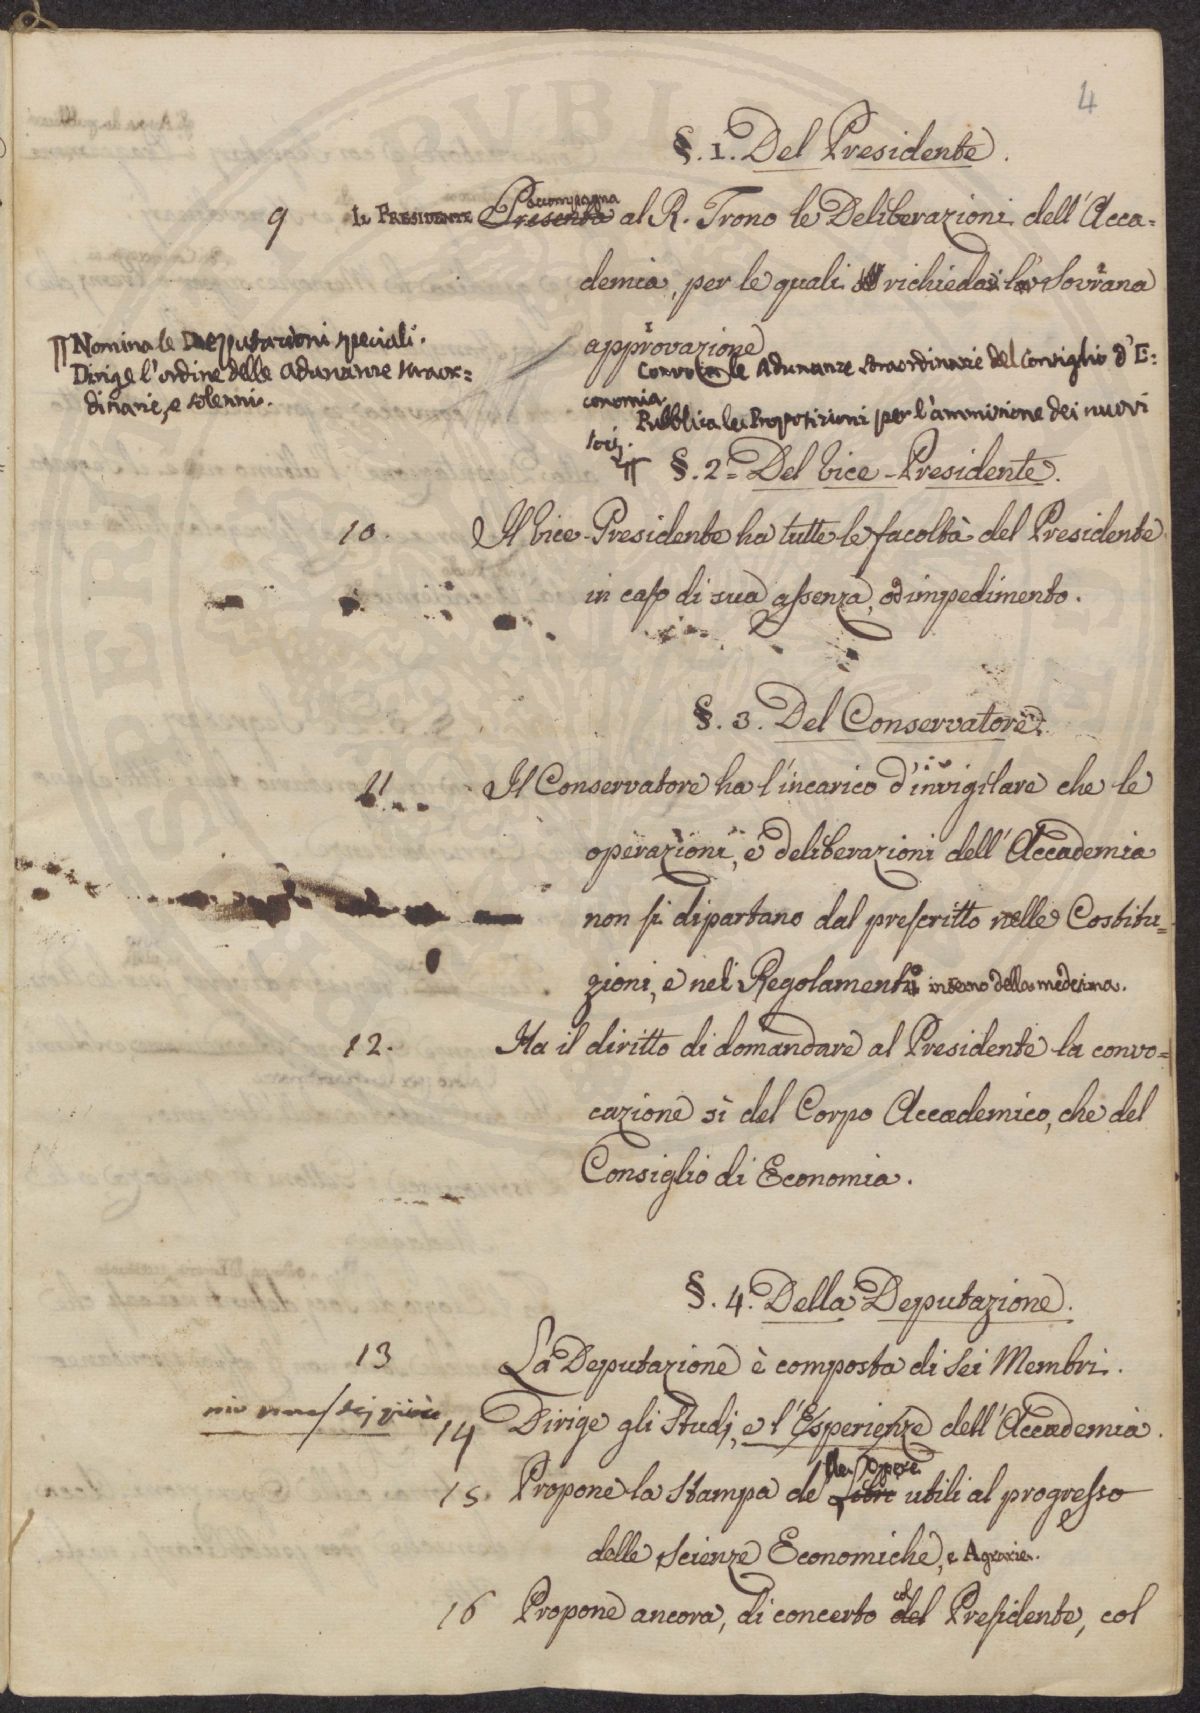 4
§. 1. Del Presidente.
9 Il Presidente Presenta accompagna al R. Trono le Deliberazioni dell'Acca=
demia, per le quali richiedasi la Sovrana
approvazione
Convoca le Adunanze straordinarie del Consiglio d'E=
conomia.
Pubblica le Proposizioni per l'ammissione dei nuovi
socj.
Nomina le Deputazioni speciali.
Dirige l'ordine delle adunanze straor=
dinarie, e solenni.
§. 2. Del Vice-Presidente.
10. Il Vice-Presidente ha tutte le facoltà del Presidente
in caso di sua assenza, od impedimento.
§. 3. Del Conservatore.
11. Il Conservatore ha l'incarico d'invigilare che le
operazioni, e deliberazioni dell'Accademia
non si dipartano dal prescritto nelle Costitu=
zioni, e nel Regolamento interno della medesima.
12. Ha il diritto di domandare al Presidente la convo=
cazione sì del Corpo Accademico, che del
Consiglio di Economia.
§. 4. Della Deputazione.
13 La Deputazione è composta di sei Membri.
14 Dirige gli Studj, e l'Esperienze dell'Accademia.
15. Propone la Stampa de' Libri delle Opere utili al progresso
delle scienze Economiche, e Agrarie.
16 Propone ancora, di concerto del col Presidente, col